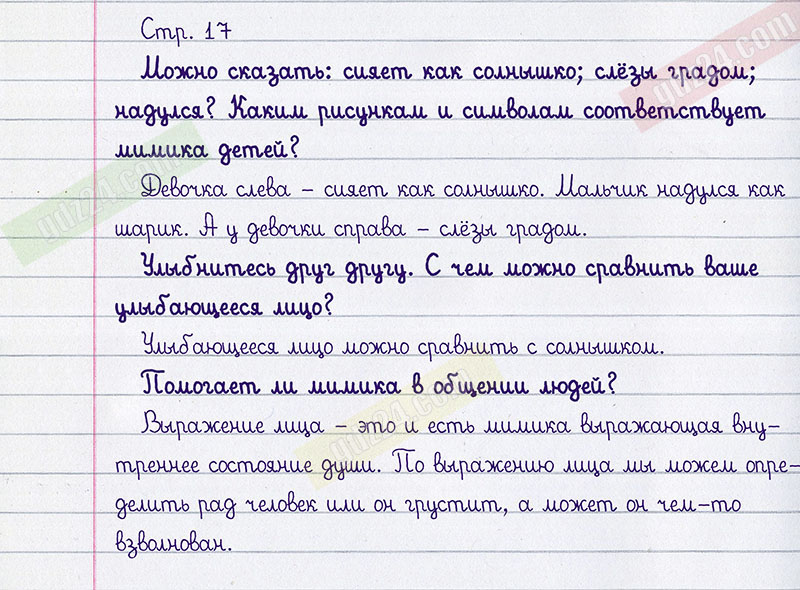 Стр. 17
Можно сказать: сияет как солнышко; слёзы градом;
надулся? Каким рисункам и символам соответствует
мимика детей?
Девочка слева – сияет как солнышко. Мальчик надулся как
шарик. А у девочки справа – слёзы градом.
Улыбнитесь друг другу. С чем можно сравнить ваше
улыбающееся лицо?
Улыбающееся лицо можно сравнить с солнышком.
Помогает ли мимика в общении людей?
Выражение лица – это и есть мимика выражающая вну-
треннее состояние души. По выражению лица мы можем опре-
делить рад человек или он грустит, а может он чем-то
взволнован.
gdz24.com
gdz24.com
gdz24.com